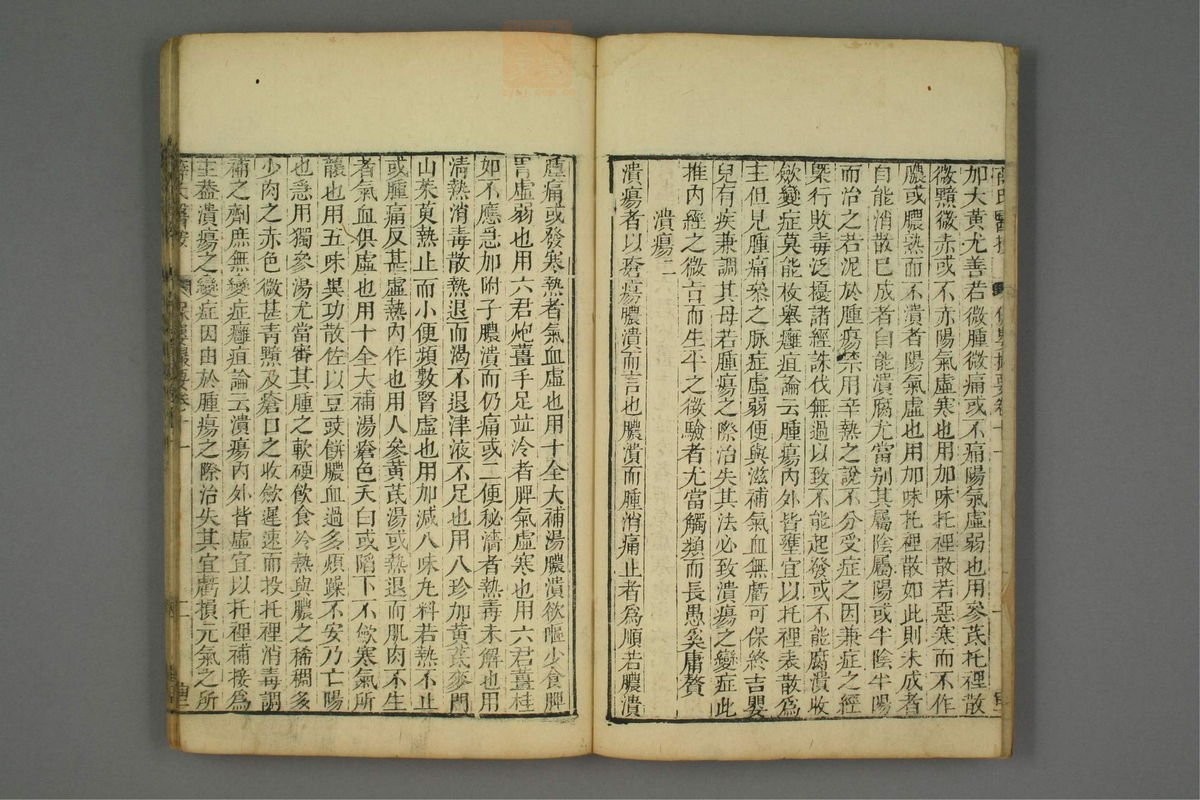 加大黃尤善若微腫微痛或不痛陽氣虛弱也用參芪托裡散
微黯微赤或不赤陽氣虛寒也用加味托裡散若惡寒而不作
膿或膿熟而不潰者陽氣虛也用加味托裡散如此則未成者
自能消散已成者自能潰腐尤當別其屬陰屬陽或半陰半陽
而治之若泥於腫瘍禁用辛熱之說不分受症之因兼症之經
槩行敗毒泛擾諸經誅伐無過以致不能起發或不能腐潰收
斂變症莫能枚舉癰疽論云腫瘍內外皆壅宜以托裡表散為
主但見腫痛槩之脉症虛弱便與滋補氣血無虧可保終吉嬰
兒有疾兼調其母若腫瘍之際治失其法必致潰瘍之變症此
推內經之微言而生平之徵驗者尤當觸類而長愚奚庸贅
潰瘍二
潰瘍者以瘡瘍膿潰而言也膿潰而腫消痛止者為順若膿潰
腫痛或發寒熱者氣血虛也用十全大補湯膿潰欲嘔少食脾
胃虛弱也用六君炮薑手足並冷者脾氣虛寒也用六君薑桂
如不應急加附子膿潰而仍痛或二便秘濇者熱毒未解也用
清熱消毒散熱退而渴不退津液不足也用八珍加黃芪麥門
山茱萸熱止而小便頻數腎虛也用加減八味丸料若熱不止
或腫痛反甚虛熱內作也用人參黃芪湯或熱退而肌肉不生
者氣血俱虛也用十全大補湯瘡色夭白或陷下不斂寒氣所
襲也用五味異功散佐以豆豉餅膿血過多煩躁不安乃亡陽
也急用獨參湯尤當審其腫之軟硬飲食冷熱與膿之稀稠多
少肉之赤色微甚青黯及瘡口之收斂遲速而投托裡消毒調
補之劑庶無變症癰疽論云潰瘍內外皆虛宜以托裡補接為
主蓋潰瘍之變症因由於腫瘍之際治失其宜虧損元氣之所